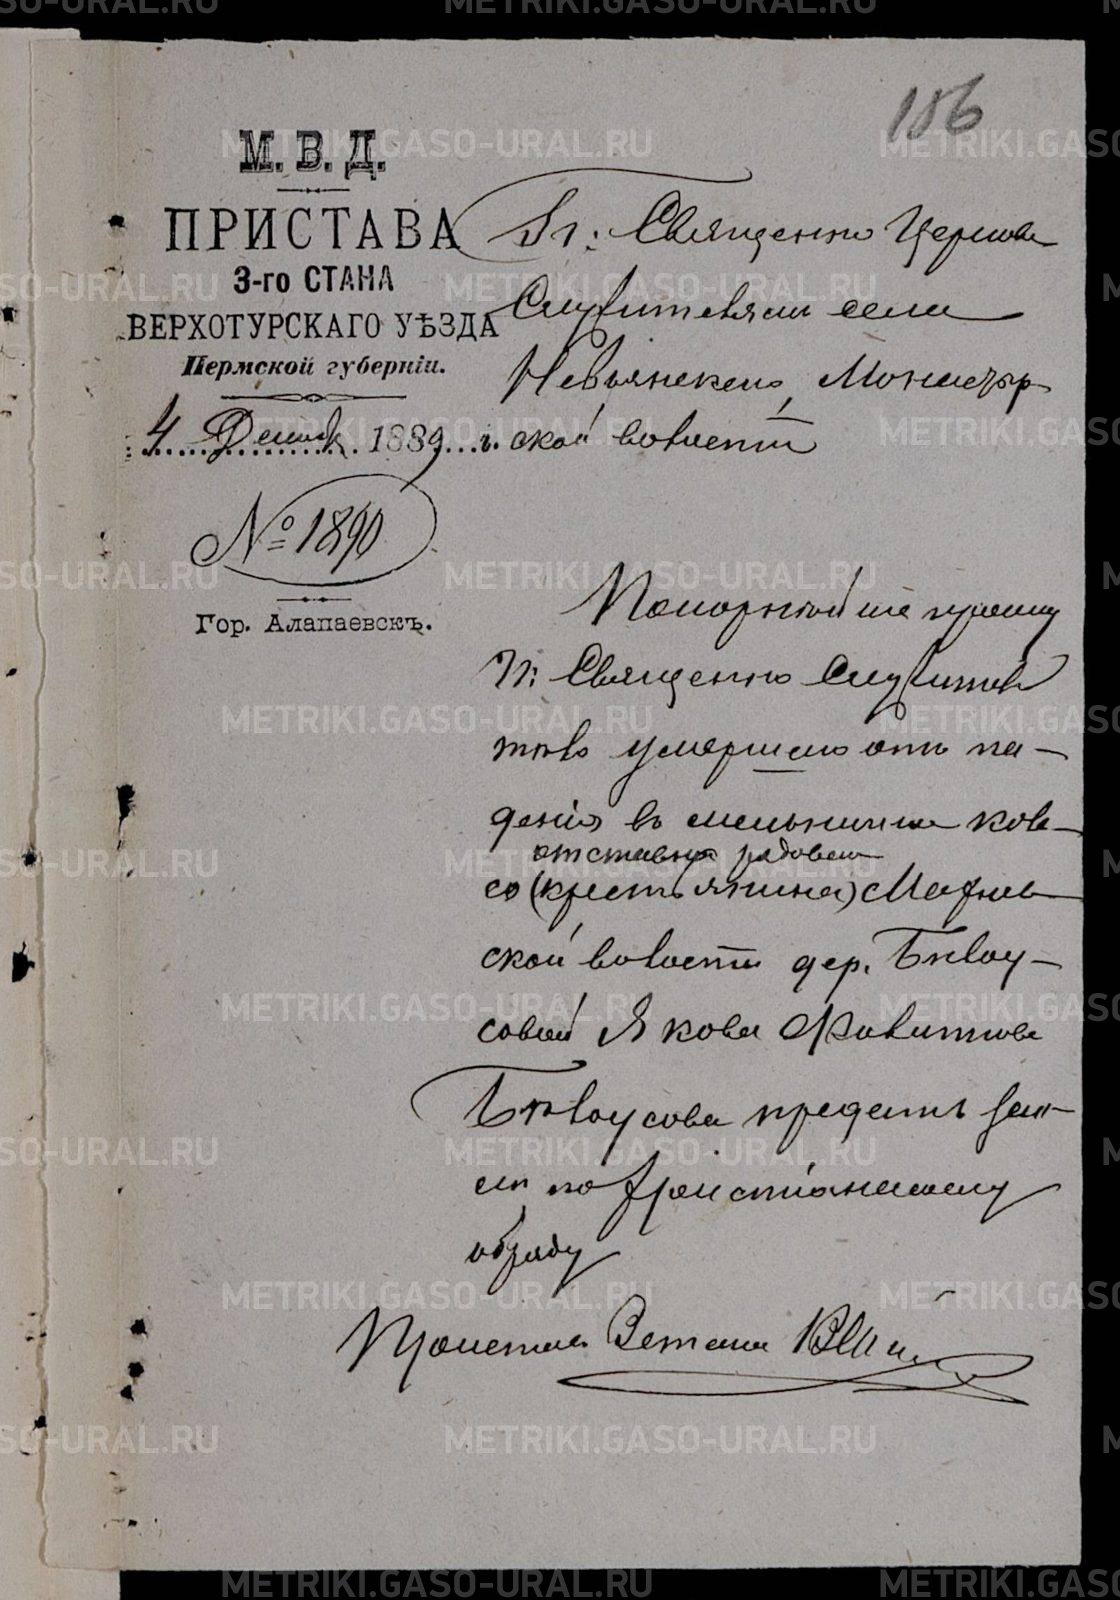 186
М. В. Д.
ПРИСТАВА
3-го СТАНА
ВЕРХОТУРСКАГО УѢЗДА
Пермской губерніи.
4 Декаб 1889 г.
№ 1890
Гор. Алапаевскъ.
Гг. Священно Церковно
Служителямъ села
Невьянскаго, Монастыр
ской волости
Покорнѣйше прошу
Гг. Священно Служите
тѣло умершаго отъ па-
денія въ мельнично коле-
отставного рядового
со (крестьянина) Мах
ской волости дер. Бѣлоу-
совой Якова Филиппова
Бѣлоусова предать зем-
лѣ по христіанскому
обряду
Приставъ 3 стана
METRIKI.GASO-URAL.RU